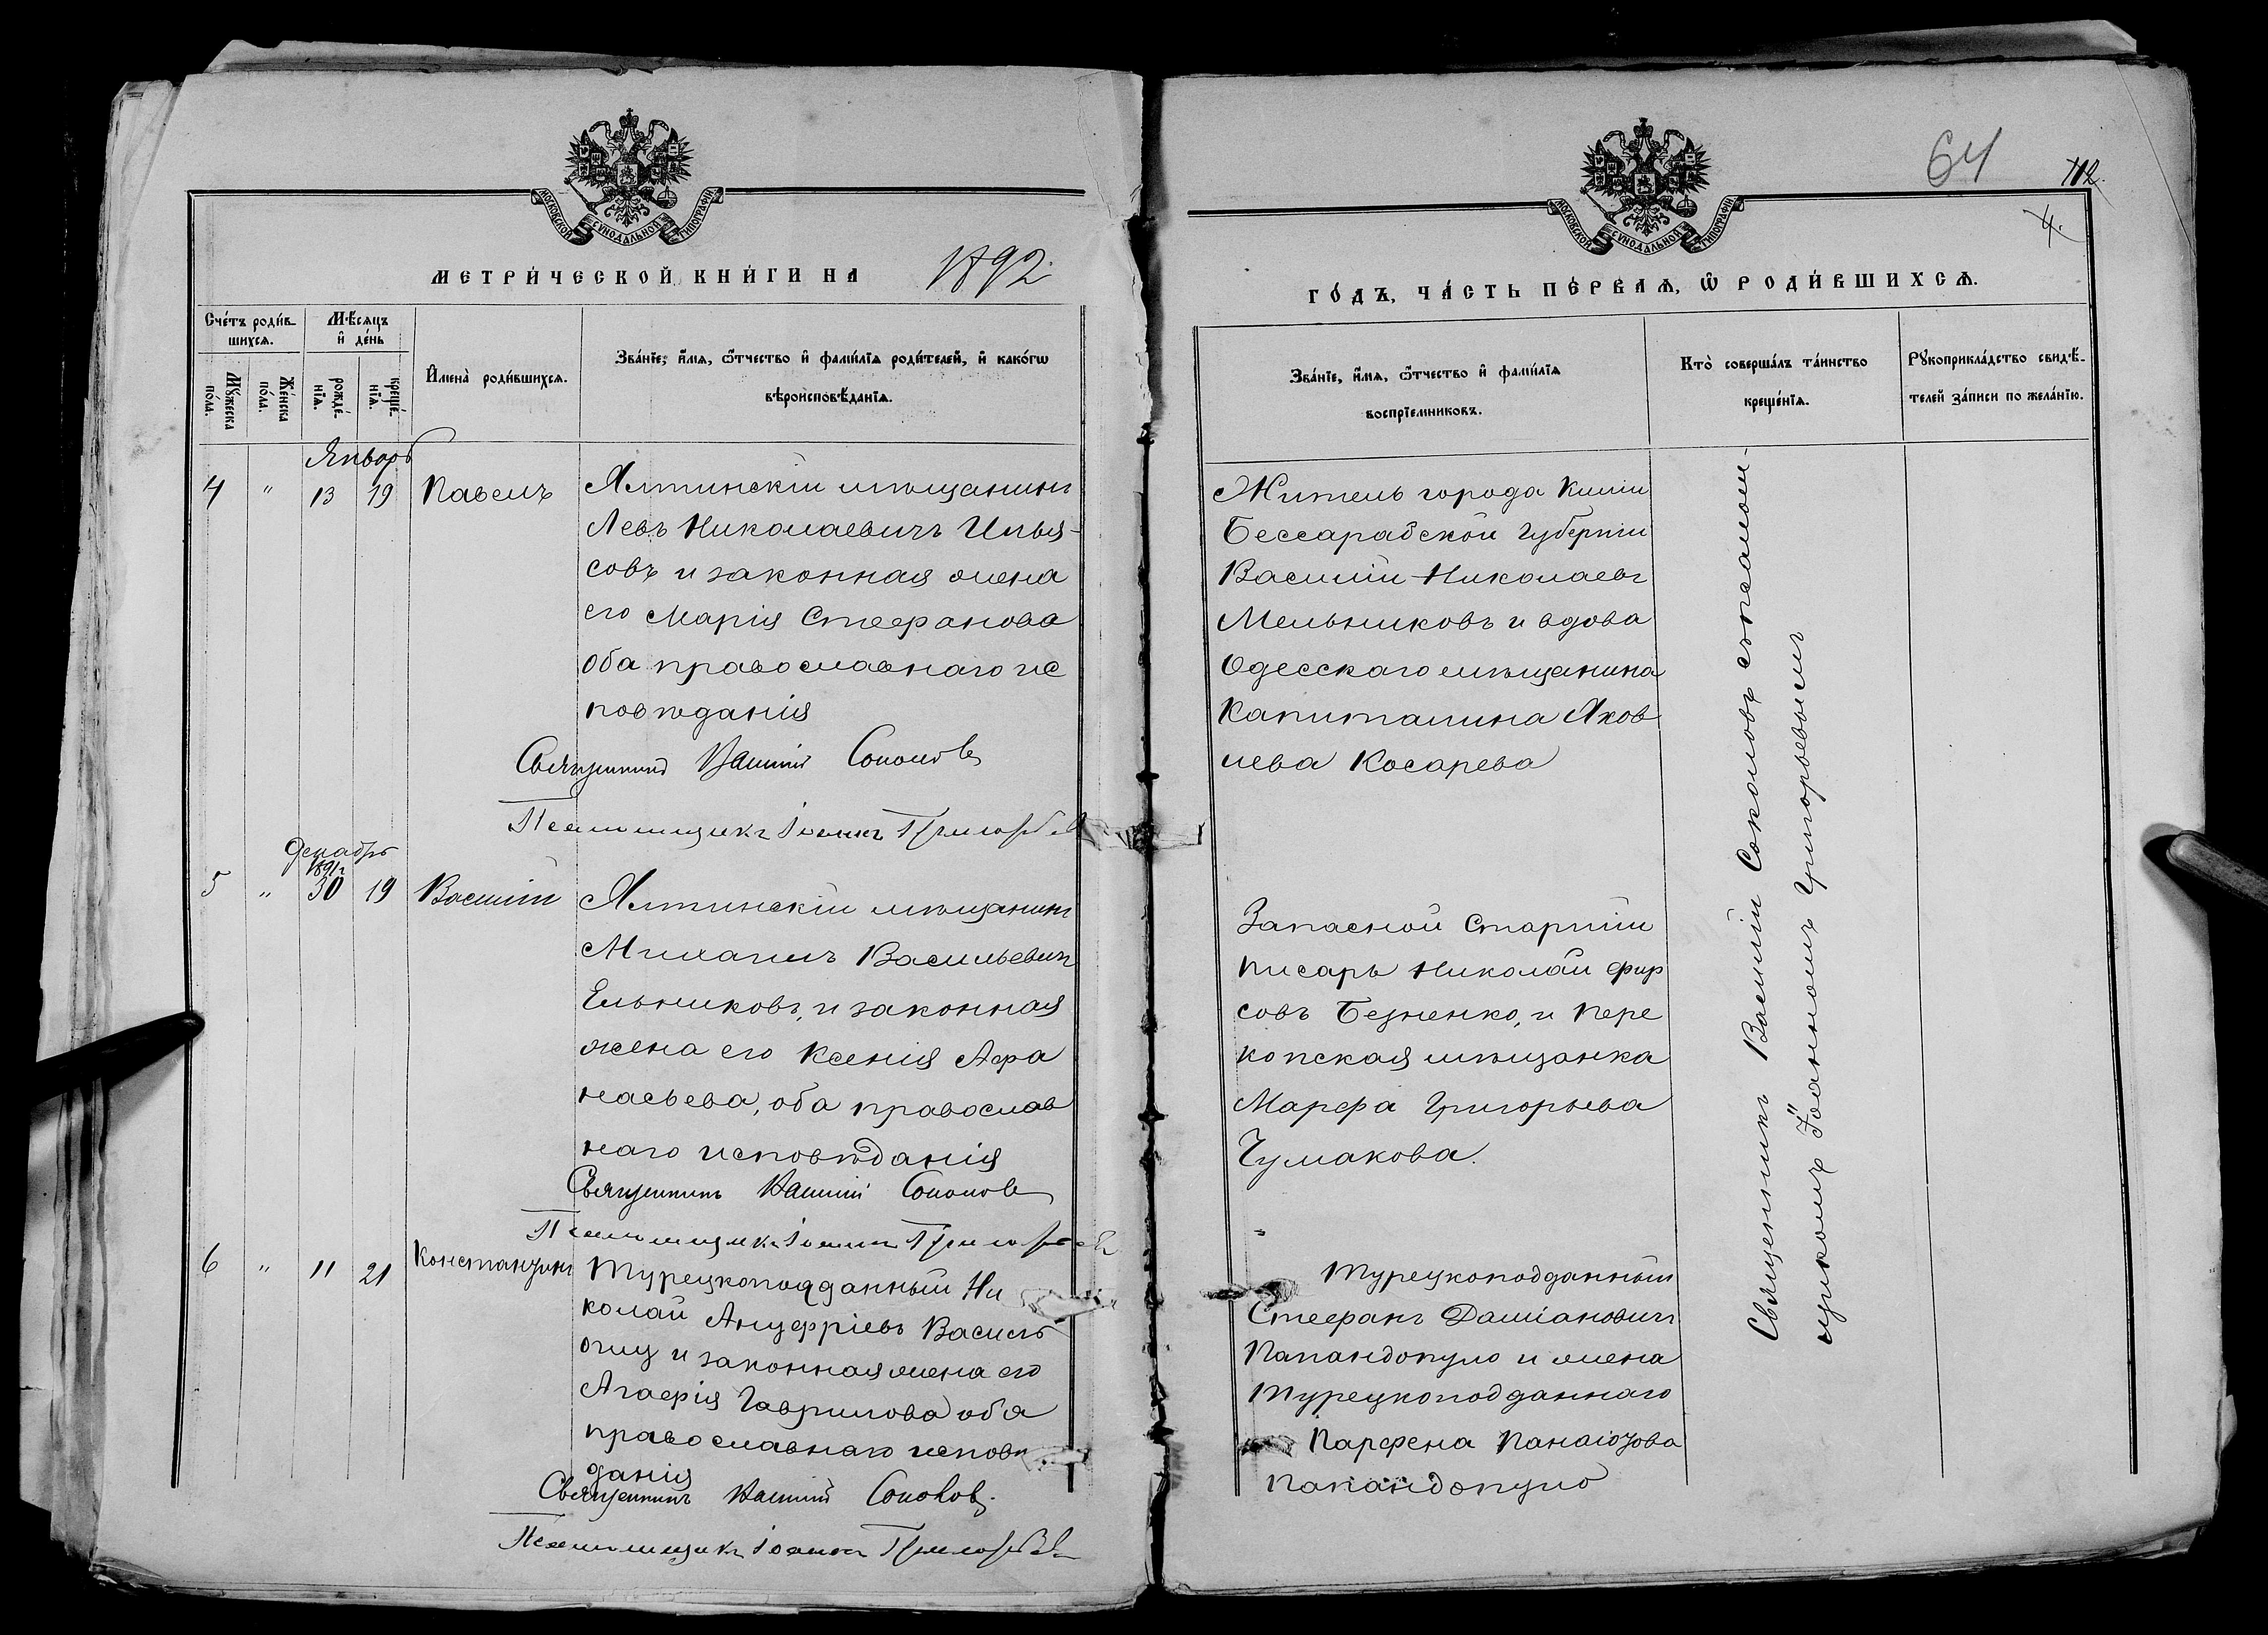 МОСКОВСКОЙ СѴНОДАЛЬНОЙ ТИПОГРАФІИ
МЕТРИ́ЧЕСКОЙ КНИ́ГИ НА 1892
Сче́тъ роди́в-
шихсѧ.
Мѣ́сѧцъ
и҆ де́нь
Мꙋ́жеска
по́ла.
Же́нска
по́ла.
рожде́-
нїѧ.
креще́-
нїѧ.
И҆мена̀ роди́вшихсѧ.
Зва́нїе, и҆́мѧ, ѻ҆́тчество и҆ фами́лїѧ роди́телей, и҆ како́гѡ
вѣроисповѣ́данїѧ.
Январь
4 " 13 19 Павелъ
Ялтинскій мѣщанинъ
Левъ Николаевичъ Илья-
совъ и законная жена
его Марія Стефанова
оба православнаго ис
повѣданія
Священникъ Василій Соколовъ
Псаломщикъ Іоаннъ Григорьевъ
Декабрь
1891 г
5 " 30 19 Василій
Ялтинскій мѣщанинъ
Михаилъ Васильевичъ
Ельниковъ, и законная
жена его Ксенія Афа
насьева, оба православ
наго исповѣданія
Священникъ Василій Соколовъ
Псаломщикъ Іоаннъ Григорьевъ
6 " 11 21 Константинъ
Турецкоподданный Ни
колай Василь
оглу и законная жена его
Агафія Гаврилова оба
православнаго исповѣ
данія
Священникъ Василій Соколовъ.
Псаломщикъ Іоаннъ Григорьевъ
64
112.
4.
МОСКОВСКОЙ СѴНОДАЛЬНОЙ ТИПОГРАФІИ
ГО́ДЪ, ЧА́СТЬ ПЕ́РВАѦ, Ѡ҆ РОДИ́ВШИХСѦ.
Зва́нїе, и҆́мѧ, ѻ҆́тчество и҆ фами́лїѧ
воспрїемниковъ.
Кто̀ соверша́лъ та́инство
креще́нїѧ.
Рꙋкоприкла́дство свидѣ́-
телей за́писи по жела́нїю.
Житель города Киліи
Бессарабской губерніи
Василій Николаевъ
Мельниковъ и вдова
Одесскаго мѣщанина
Капиталина Яков
лева Косарева
Запасной Старшій
писарь Николай Фир
совъ Безненко, и Пере
копская мѣщанка
Марфа Григорьева
Чумакова.
Турецкоподданный
Стефанъ Даміановичъ
Папандопуло и жена
турецкоподданнаго
Парфена Панаіотова
Папандопуло
Священникъ Василій Соколовъ съ псалом-
щикомъ Іоанномъ Григорьевымъ